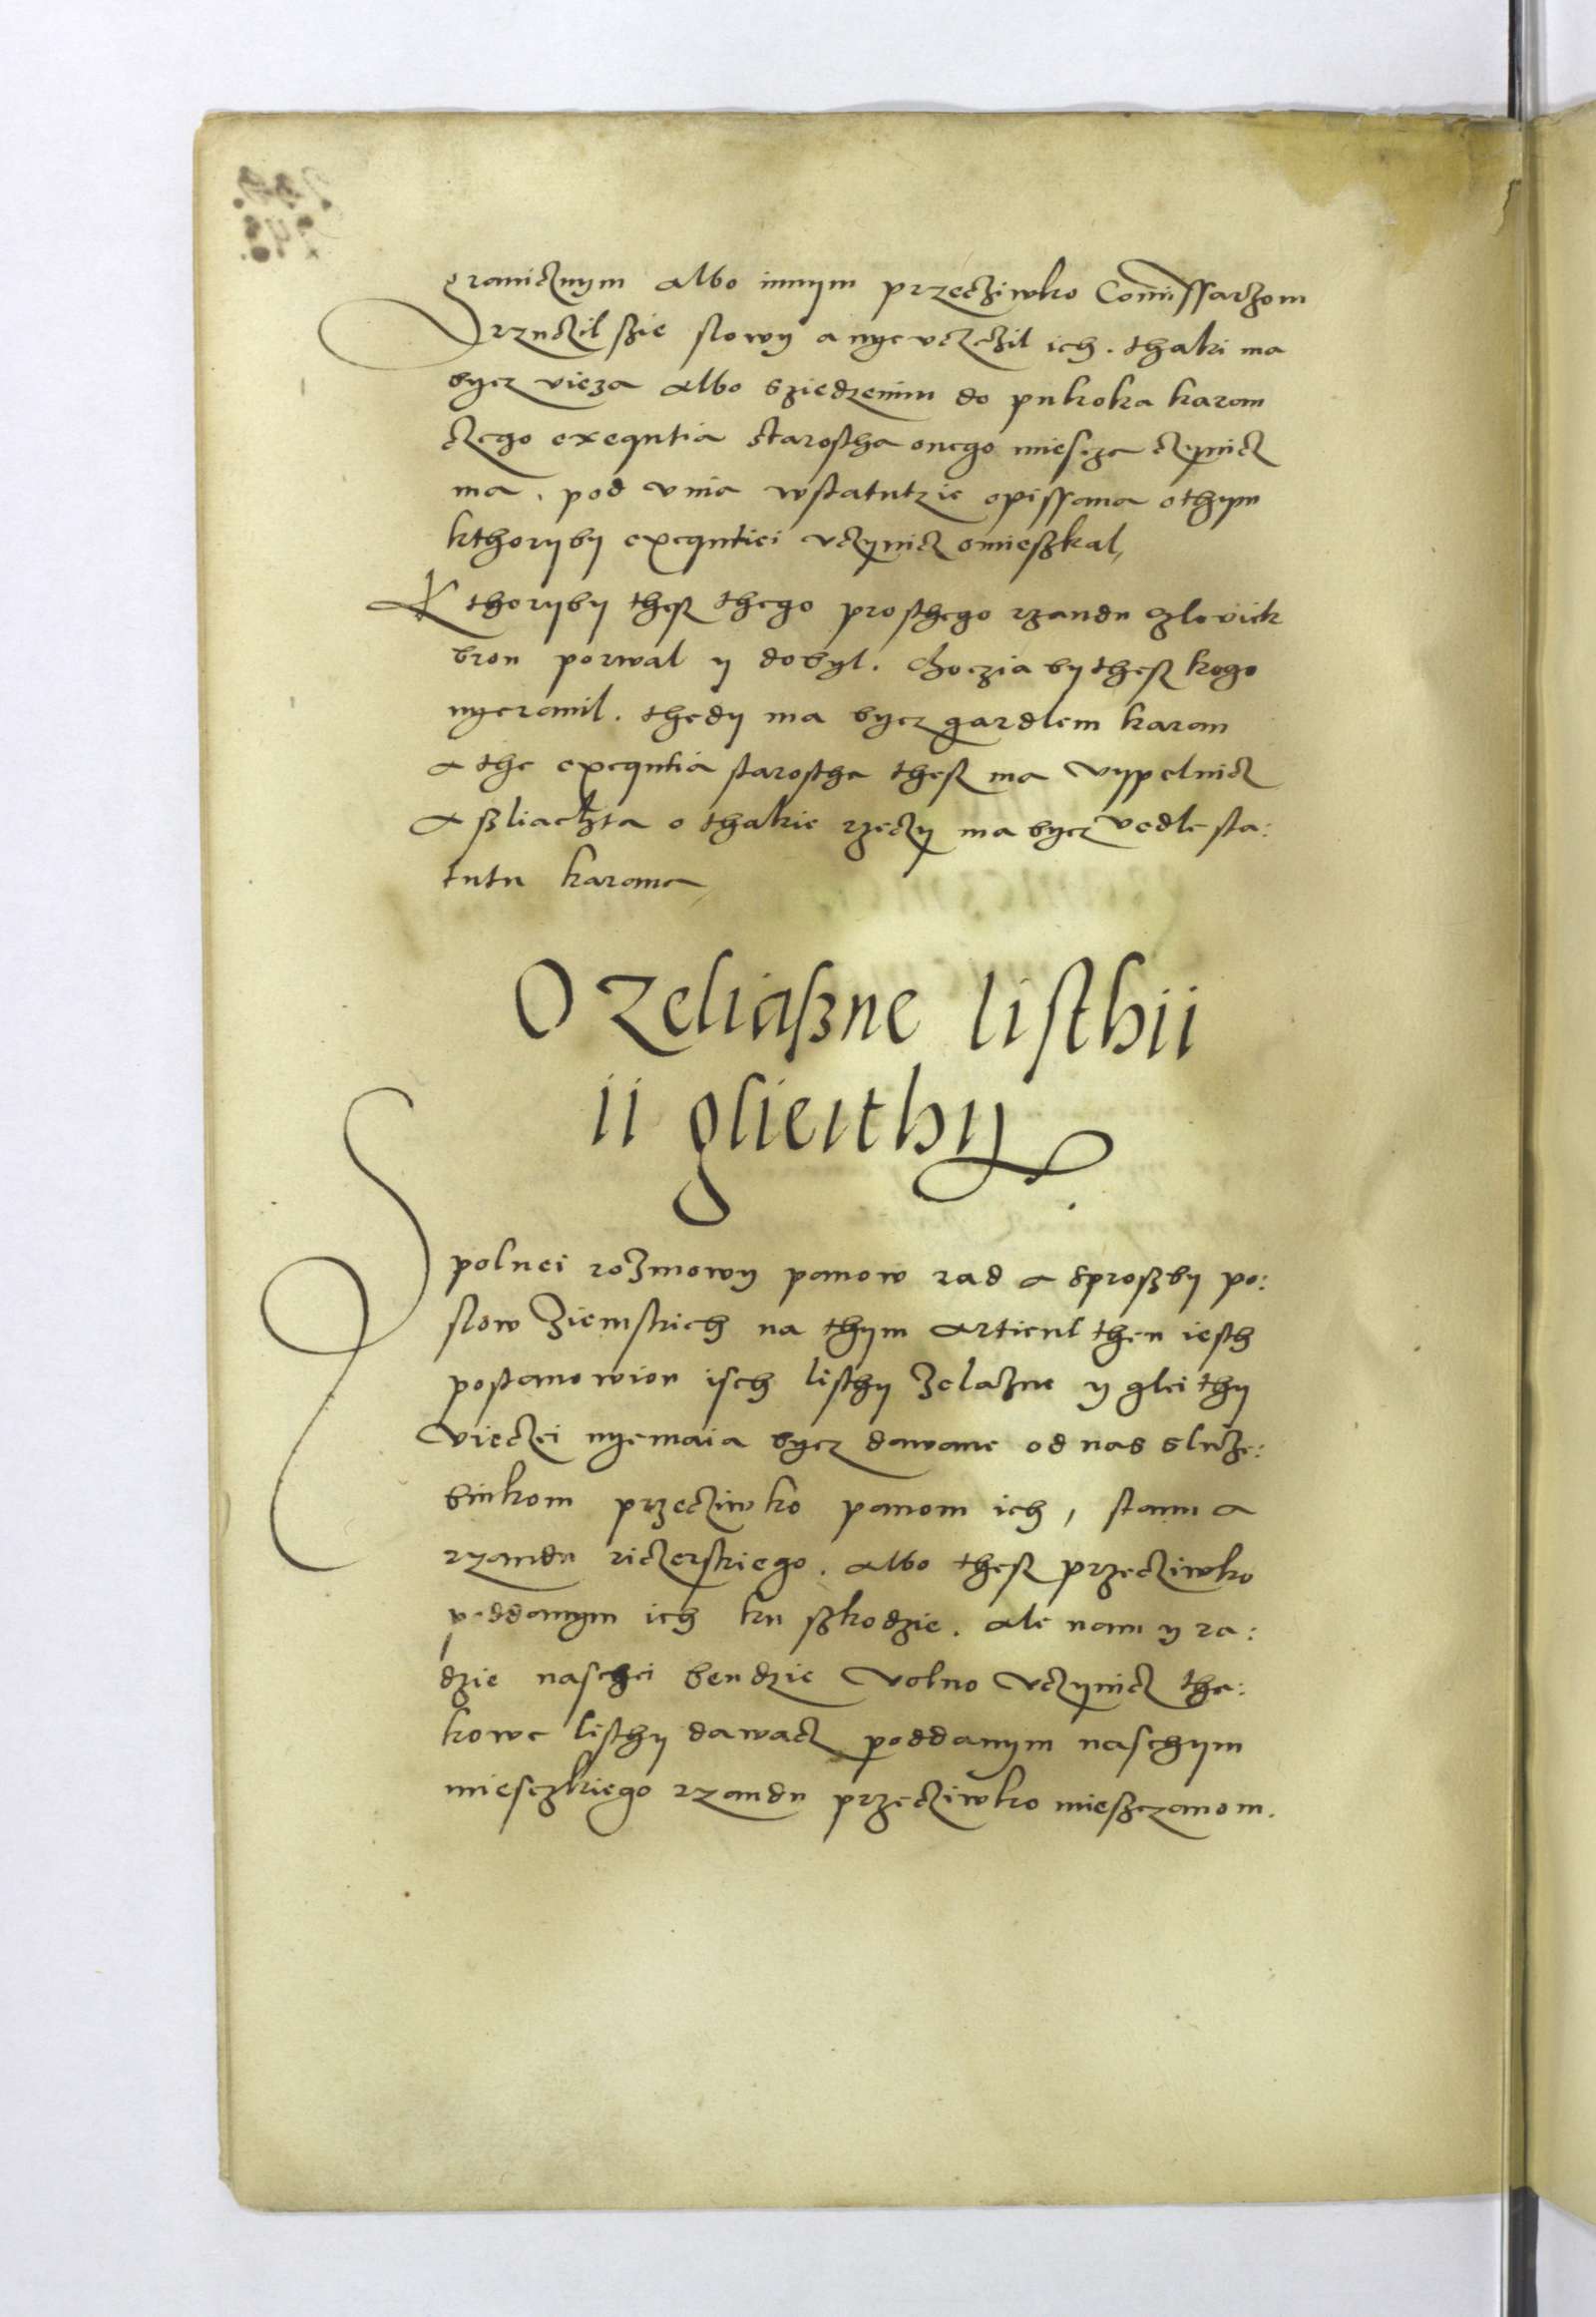 granicznym albo innym przecziwko Com̃issarzom
rzuczil szie slowy a nye uczczil ich. thaki ma
bycz vieza albo sziedzenim do pukoka karan
czego exequtia starostha onego miescza czynicz
ma, pod vina wstatutzie opissana othym
kthoryby exequtiei uczynicz omieszkal,
Kthoryby thesz thego prosthego rzandu czlovick
bron porwal y dobyl. choczia by thesz kogo
nyeranil. thedy ma bycz gardlem karan
a the exequtia starostha thesz ma vypelnicz
A szliachta o thakie rzeczy ma bycz vedle sta:
tutu karana,
O Zeliaszne listhii
ii glieithy
Spolnei rozmowy panow rad a sproszby po:
slow Ziemskich na thym articul then iesth
postanowion isch listhy Zelazne y gleithy
vieczei nyemaia bycz dawane od nas sluze:
bnikom przecziwko panom ich, stanu a
rzandu riczerskiego. albo thesz przecziwko
poddanym ich ku szkodzie. ale nam y ra:
dzie naschei bendzie volno uczynicz tha:
kowe listhy dawacz poddanym naschym
miesczkiego rzandu przecziwko mieszczanom.